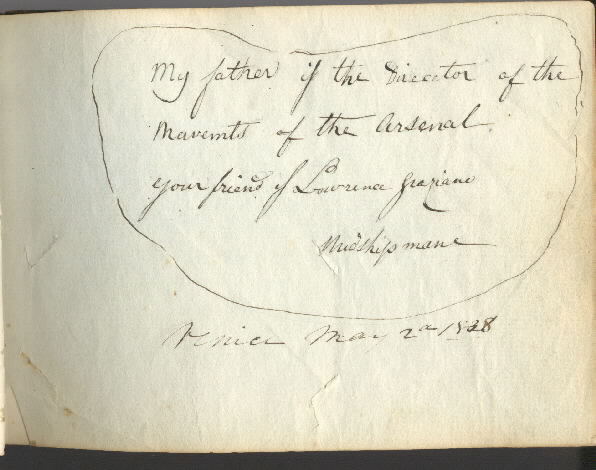 My father if the Director of the
Mavemts of the Arsenal.
your friend if Lowrence Graziane
Midshipmane
Venice May 2d 1828